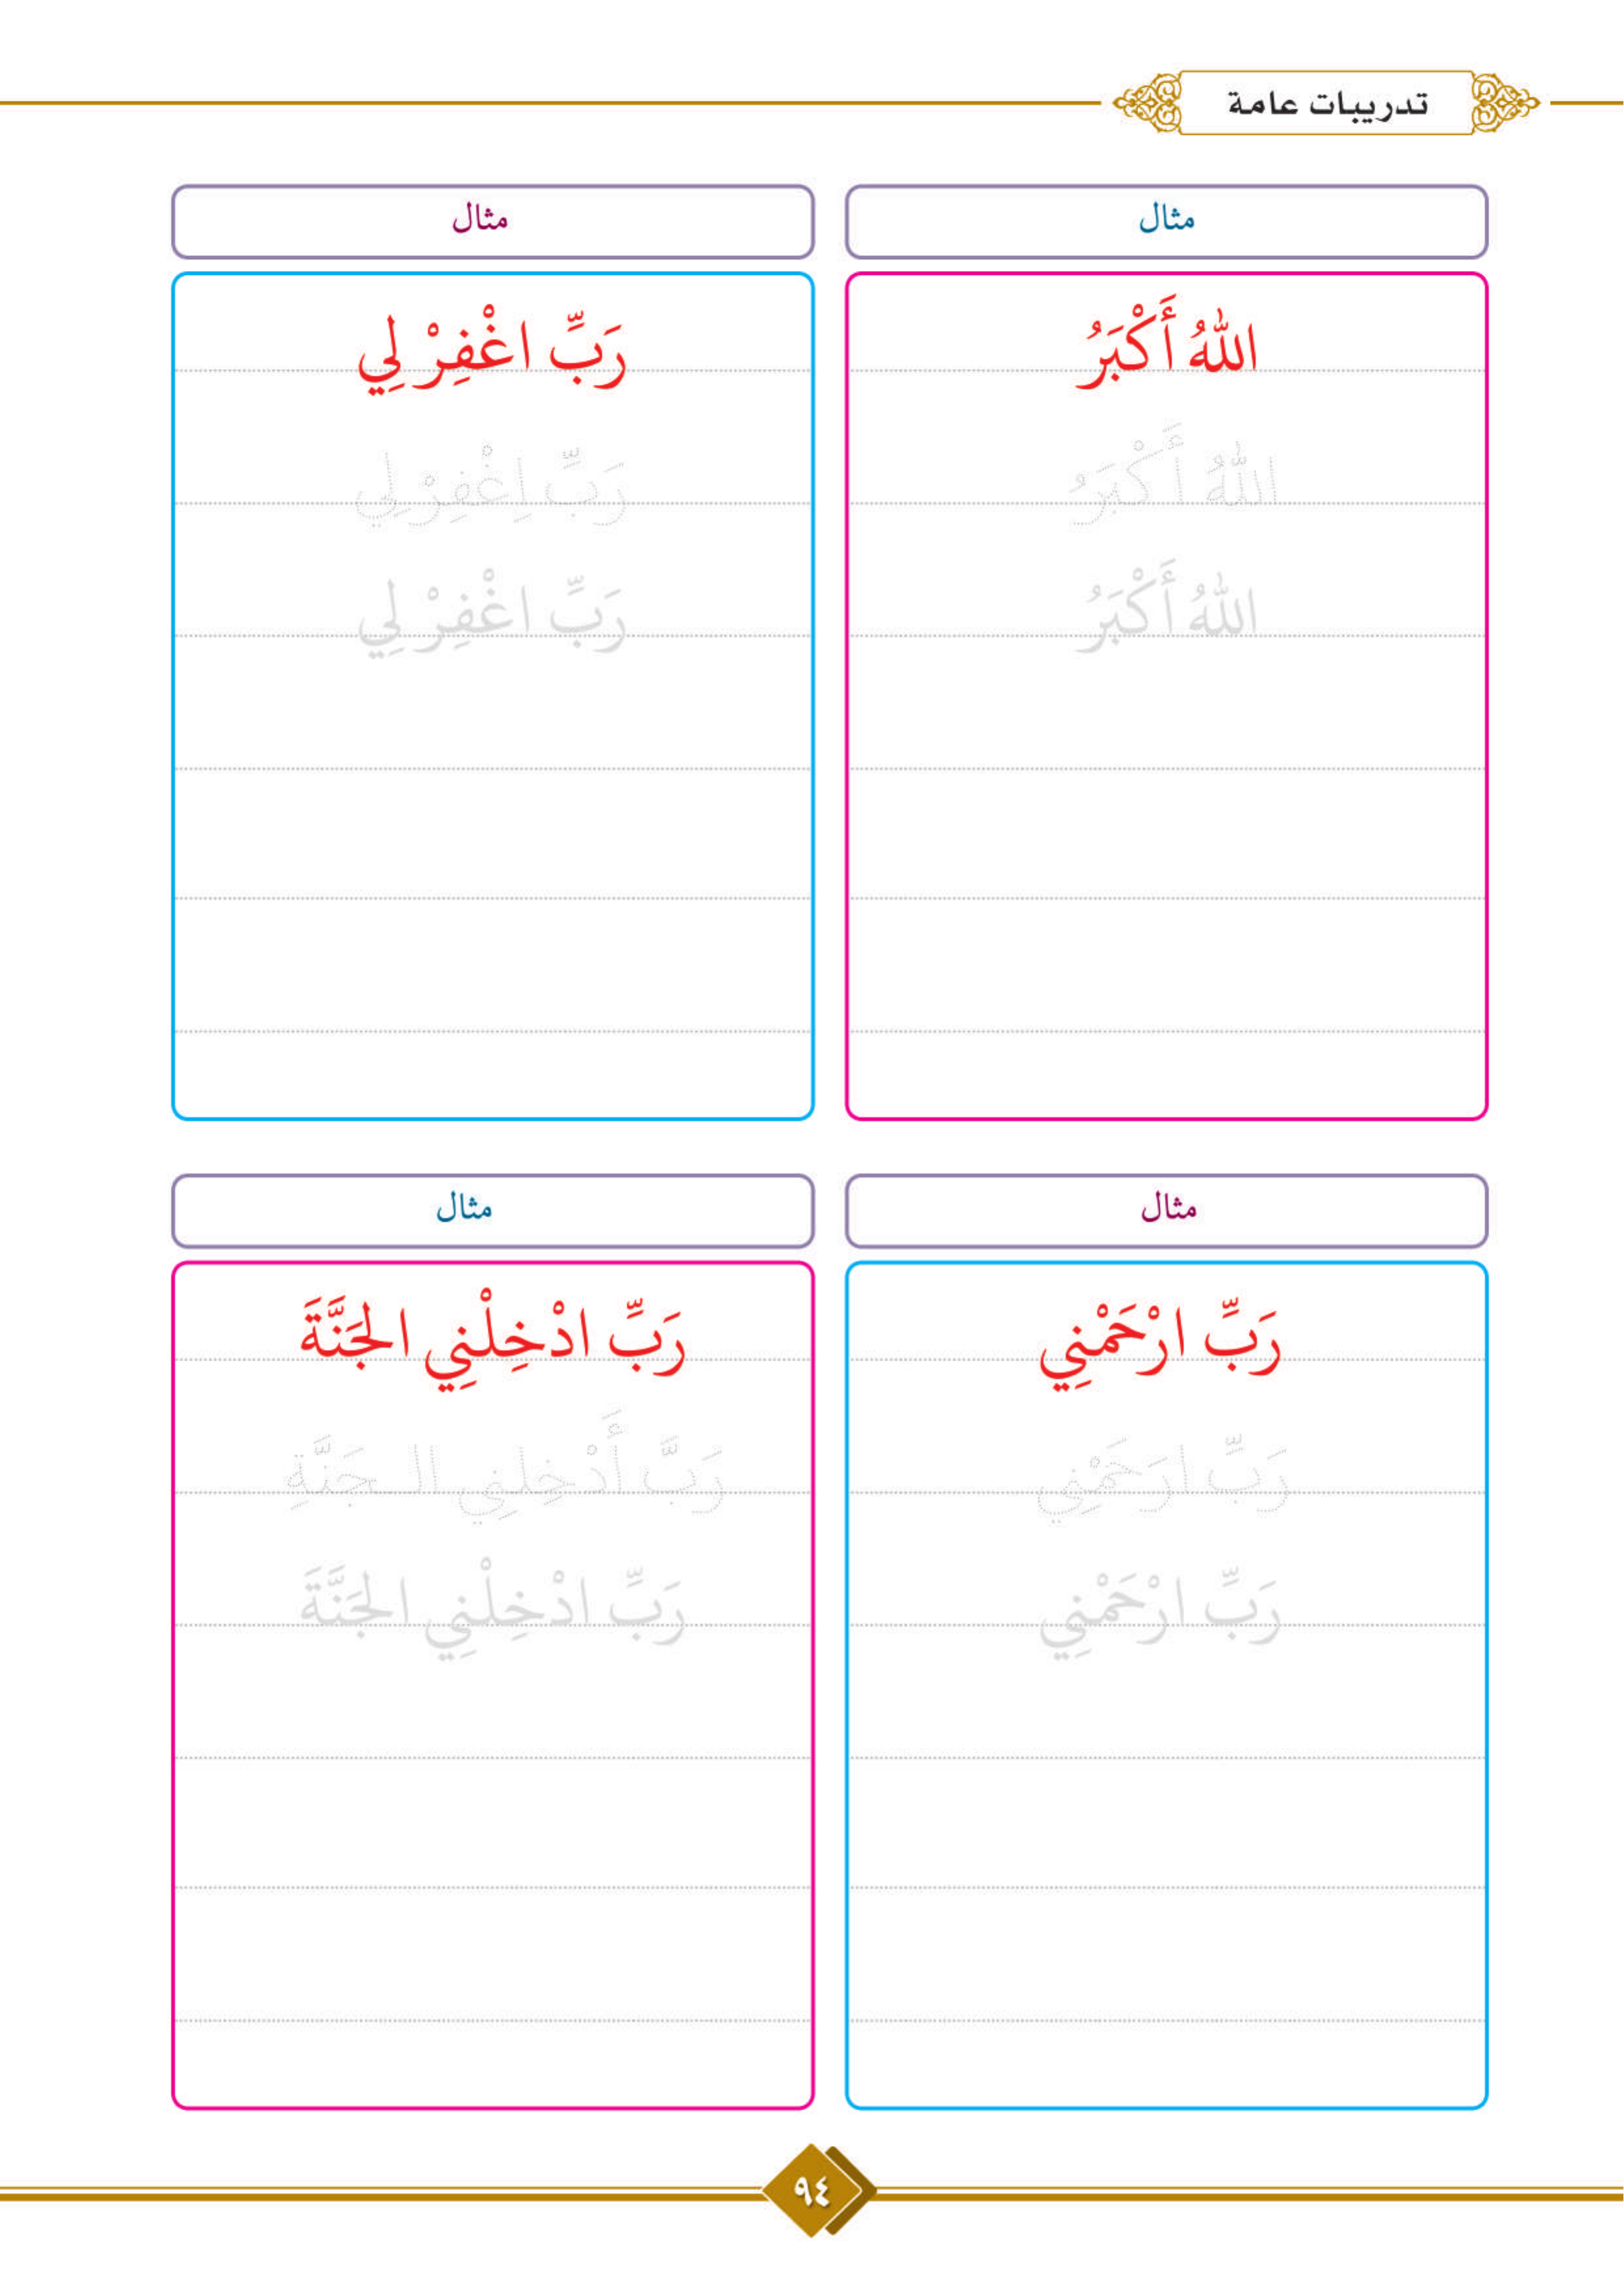 تدريبات عامة
مثال
اللهُ أَكْبَرُ
اللهُ أَكْبَرُ
اللهُ أَكْبَرُ
مثال
رَبِّ اغْفِرْ لِي
رَبِّ اِغْفِرْ لِي
رَبِّ اغْفِرْ لِي
مثال
رَبِّ ارْحَمْنِي
رَبِّ ارَحَمْنِي
رَبِّ ارْحَمْنِي
مثال
رَبِّ ادْخِلْنِي الجَنَّةَ
رَبَّ أَدْخِلنِي الـجَنَّةِ
رَبِّ ادْخِلْنِي الجَنَّةَ
٩٤